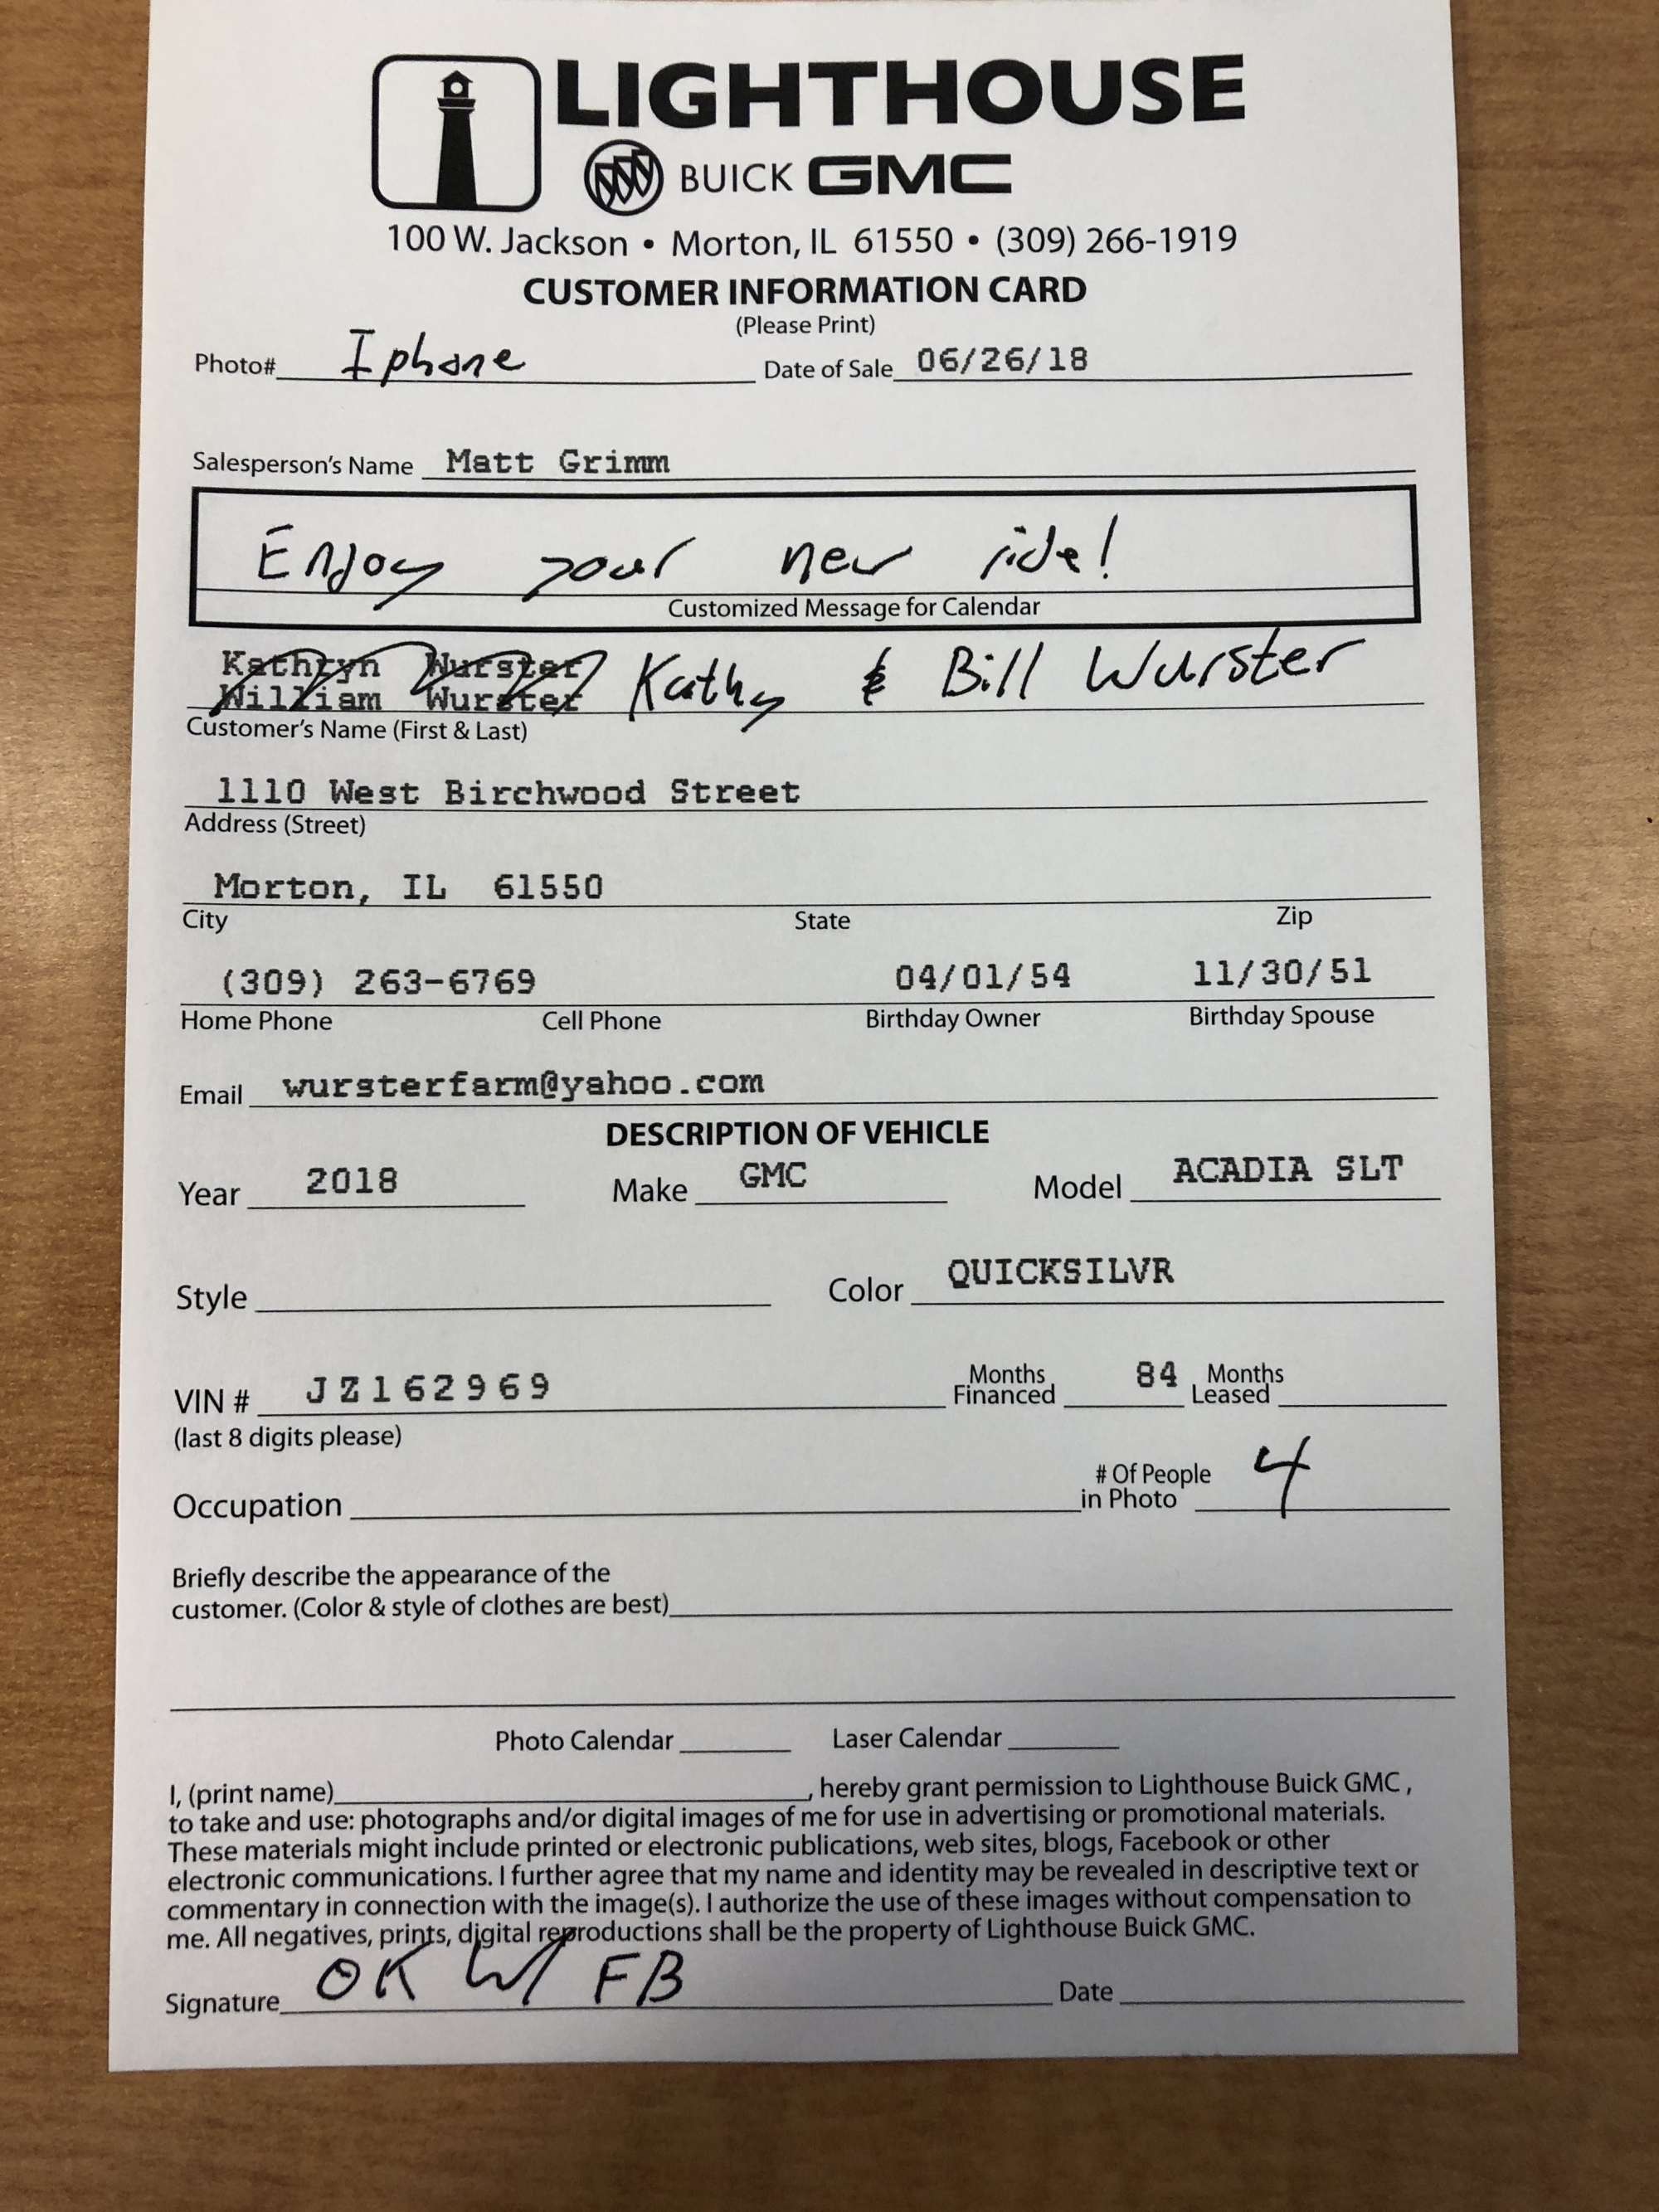 LIGHTHOUSE
BUICK GMC
100 W. Jackson • Morton, IL 61550 • (309) 266-1919
CUSTOMER INFORMATION CARD
(Please Print)
Photo# Iphone Date of Sale 06/26/18
Salesperson's Name Matt Grimm
Enjoy your new ride!
Customized Message for Calendar
Kathryn Wurster
William Wurster Kathy & Bill Wurster
Customer's Name (First & Last)
1110 West Birchwood Street
Address (Street)
Morton, IL 61550
City State Zip
(309) 263-6769 04/01/54 11/30/51
Home Phone Cell Phone Birthday Owner Birthday Spouse
Email wursterfarm@yahoo.com
DESCRIPTION OF VEHICLE
Year 2018 Make GMC Model ACADIA SLT
Style Color QUICKSILVR
VIN # JZ162969 Months Financed 84 Months Leased
(last 8 digits please)
Occupation # Of People in Photo 4
Briefly describe the appearance of the
customer. (Color & style of clothes are best)
Photo Calendar Laser Calendar
I, (print name) , hereby grant permission to Lighthouse Buick GMC ,
to take and use: photographs and/or digital images of me for use in advertising or promotional materials.
These materials might include printed or electronic publications, web sites, blogs, Facebook or other
electronic communications. I further agree that my name and identity may be revealed in descriptive text or
commentary in connection with the image(s). I authorize the use of these images without compensation to
me. All negatives, prints, digital reproductions shall be the property of Lighthouse Buick GMC.
Signature OK W/ FB Date